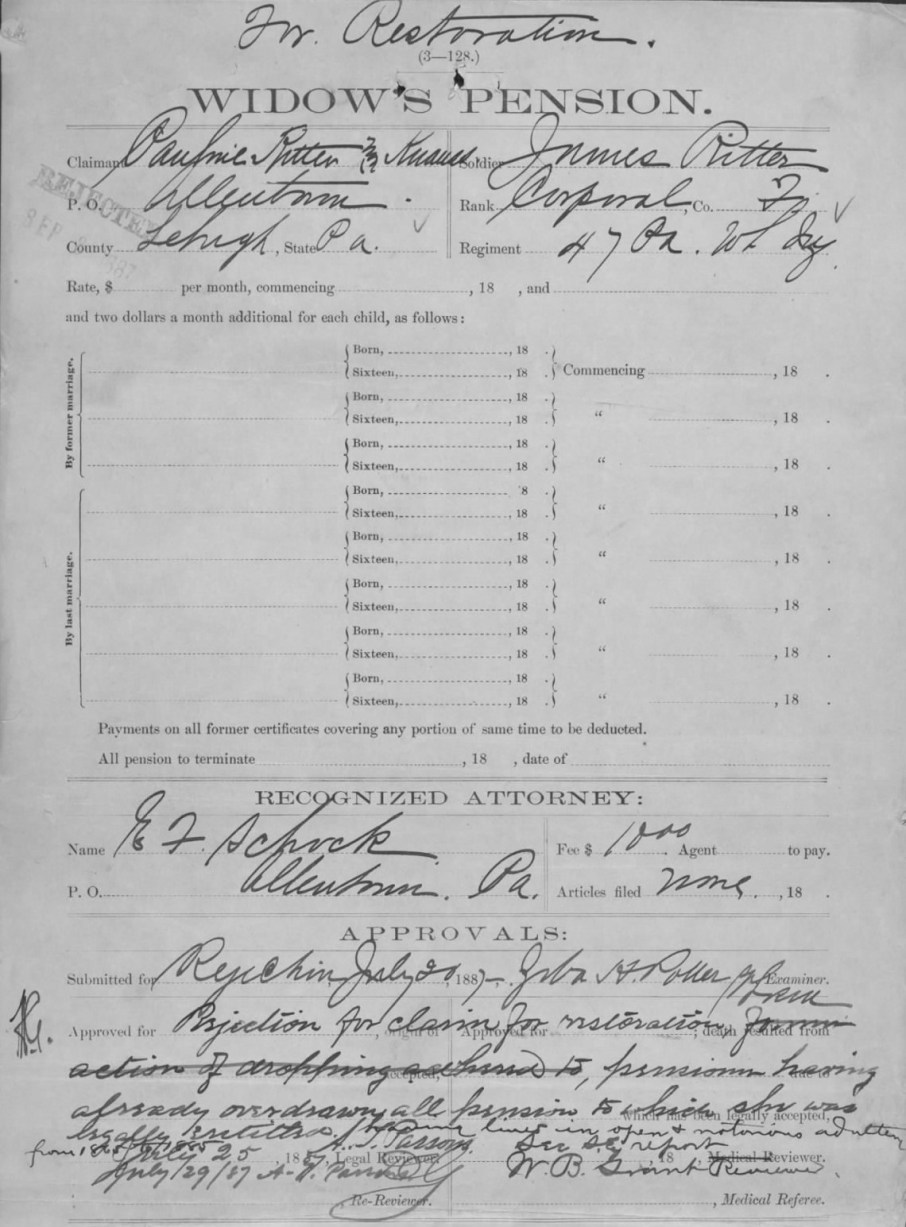 For Restoration.
(3—128.)
WIDOW'S PENSION.
Claimant Pauline Ritter Knauss Soldier James Ritter
P. O. Allentown. Rank Corporal, Co.
County Lehigh, State Pa. Regiment 47 Pa.
REJECTED
SEP
Rate, $ per month, commencing , 18 , and
and two dollars a month additional for each child, as follows:
By former marriage.
Born, , 18 .
Sixteen, , 18 . Commencing , 18 .
Born, , 18 .
Sixteen, , 18 . “ , 18 .
Born, , 18 .
Sixteen, , 18 . “ , 18 .
By last marriage.
Born, , 8 .
Sixteen, , 18 . “ , 18 .
Born, , 18 .
Sixteen, , 18 . “ , 18 .
Born, , 18 .
Sixteen, , 18 . “ , 18 .
Born, , 18 .
Sixteen, , 18 . “ , 18 .
Born, , 18 .
Sixteen, , 18 . “ , 18 .
Payments on all former certificates covering any portion of same time to be deducted.
All pension to terminate , 18 , date of
RECOGNIZED ATTORNEY:
Name E F. Schock Fee $ 10 00 . Agent to pay.
P. O. Allentown. Pa. Articles filed none. , 18 .
APPROVALS:
Submitted for Rejection, July 20, 1887. H. Potter Examiner.
Approved for Rejection for claim for restoration, origin of Approved for ; death resulted from
action of dropping adhered to, pensioner having accepted, due to
already overdrawn all pension to which she was which has been legally accepted,
legally entitled, having lived in open & notorious adultery
from 18 See S.E. report
July 25, 1887, Legal Reviewer. , 18 Medical Reviewer.
July 29/87 W. B. Grant Reviewer.
Re-Reviewer. , Medical Referee.